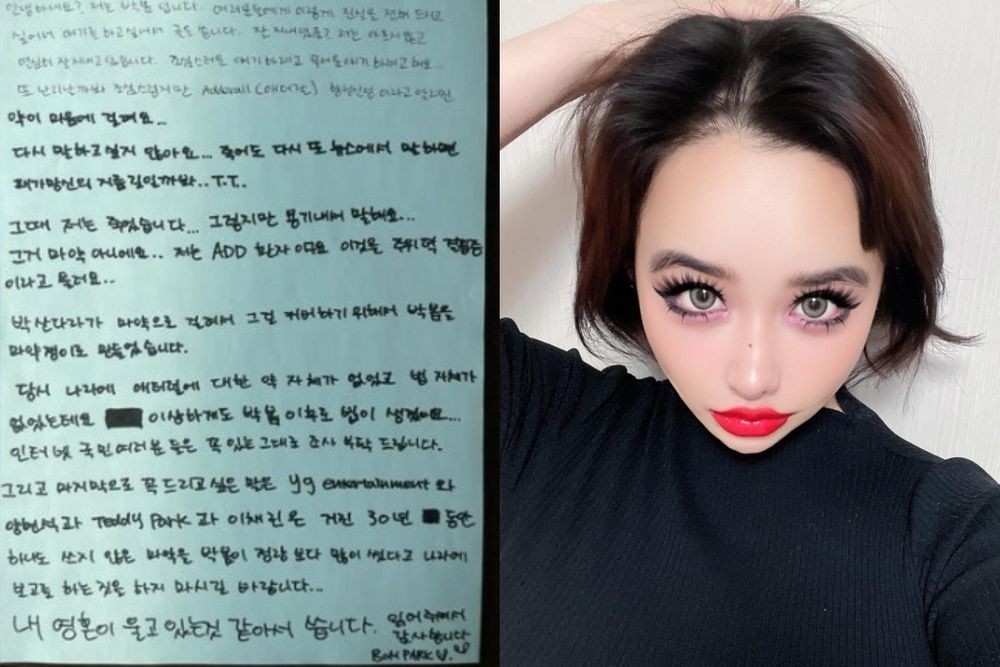 안녕하세요? 저는 박봄 입니다. 여러분들에게 이렇게 진실을 전해 드리고
싶어서 얘기를 하고싶어서 글을 씁니다. 잘 지내셨죠? 저는 아프지 않고
열심히 잘 지내고 있습니다. 조심스러운 얘기 하려고
또 난리날까봐 조심스럽지만 Adderall (애더럴)
약이 마음에 걸려요...
다시 말하고싶지 않아요... 죽어도 다시 또 뉴스에서 말하면
패가망신의 지름길일까봐.. T.T.
그때 저는 죽었습니다... 그렇지만 용기내서 말해요...
그거 마약 아니에요.. 저는 ADD 환자 에요 이것은 주위력 결핍증
이라고 불려요..
박산다라가 마약으로 걸려서 그걸 커버하기 위해서 박봄을
마약쟁이로 만들었습니다.
당시 나라에 애터럴에 대한 약 자체가 없었고 법 자체가
없었는데요 이상하게도 박봄 이후로 법이 생겼어요...
인터넷 국민여러분 들은 꼭 있는그대로 조사 부탁 드립니다.
그리고 마지막으로 꼭 드리고 싶은 말은 yg entertainment 와
양현석과 Teddy Park 과 이채린은 거진 30년 동안
하나도 쓰지 않은 마약을 박봄이 정량 보다 많이 썼다고 나라에
보고를 하는 것은 하지 마시길 바랍니다...
내 영혼이 울고 있는것 같아서 씁니다. 읽어주셔서
감사합니다
BOM PARK